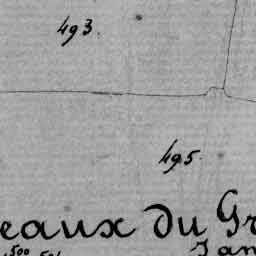 493.
495.
eaux du Gr
500